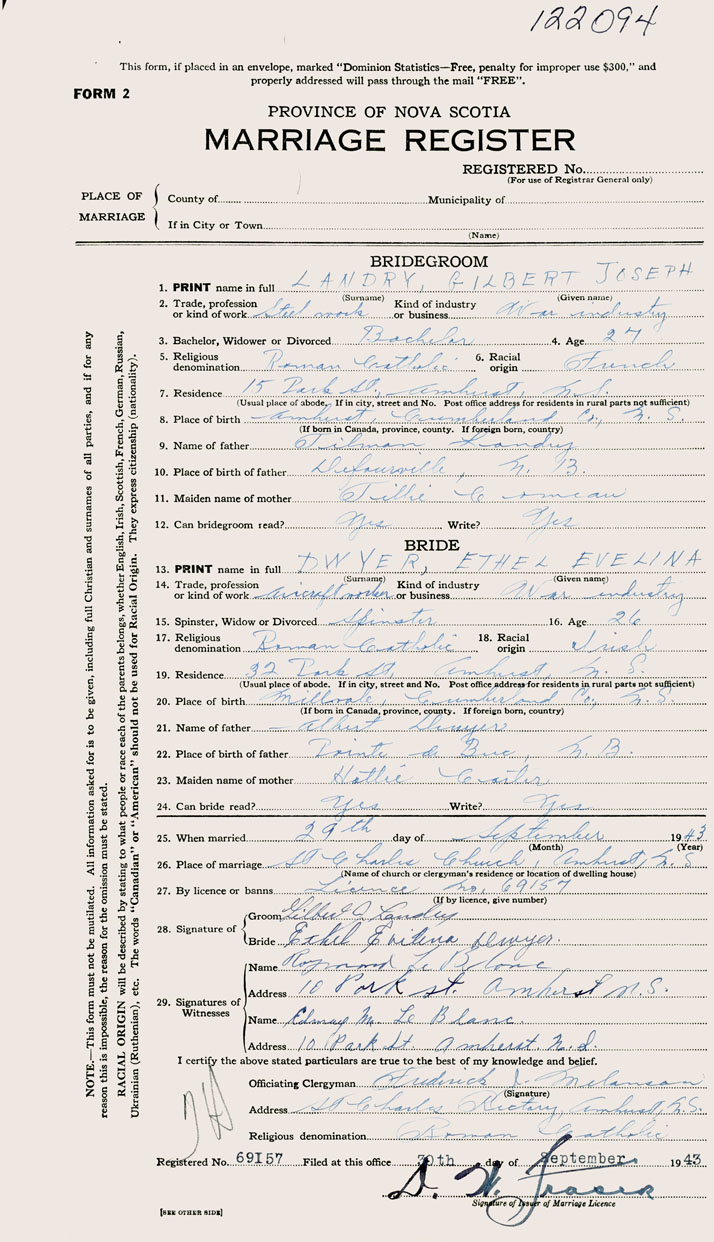 122094
This form, if placed in an envelope, marked "Dominion Statistics—Free, penalty for improper use $300," and
properly addressed will pass through the mail "FREE".
FORM 2
PROVINCE OF NOVA SCOTIA
MARRIAGE REGISTER
REGISTERED No.
(For use of Registrar General only)
PLACE OF MARRIAGE
County of Municipality of
If in City or Town
(Name)
NOTE.—This form must not be mutilated. All information asked for is to be given, including full Christian and surnames of all parties, and if for any
reason this is impossible, the reason for the omission must be stated.
RACIAL ORIGIN will be described by stating to what people or race each of the parents belongs, whether English, Irish, Scottish, French, German, Russian,
Ukrainian (Ruthenian), etc. The words "Canadian" or "American" should not be used for Racial Origin. They express citizenship (nationality).
BRIDEGROOM
1. PRINT name in full LANDRY, GILBERT JOSEPH
(Surname) (Given name)
2. Trade, profession or kind of work Steel work Kind of industry or business War industry
3. Bachelor, Widower or Divorced Bachelor 4. Age 27
5. Religious denomination Roman Catholic 6. Racial origin French
7. Residence 15 Park St. Amherst, N.S.
(Usual place of abode. If in city, street and No. Post office address for residents in rural parts not sufficient)
8. Place of birth Amherst, Cumberland Co., N. S.
(If born in Canada, province, county. If foreign born, country)
9. Name of father Tilman Landry
10. Place of birth of father N. B.
11. Maiden name of mother Tillie Comeau
12. Can bridegroom read? Yes Write? Yes
BRIDE
13. PRINT name in full DWYER, ETHEL EVELINA
(Surname) (Given name)
14. Trade, profession or kind of work aircraft worker Kind of industry or business War industry
15. Spinster, Widow or Divorced Spinster 16. Age 26
17. Religious denomination Roman Catholic 18. Racial origin Irish
19. Residence 32 Park St, Amherst N. S.
(Usual place of abode. If in city, street and No. Post office address for residents in rural parts not sufficient)
20. Place of birth Millvale, Cumberland Co., N.S.
(If born in Canada, province, county. If foreign born, country)
21. Name of father Albert Dwyer
22. Place of birth of father Pointe de Bute, N. B.
23. Maiden name of mother Hattie Carter
24. Can bride read? Yes Write? Yes
25. When married 29th day of September 1943
(Month) (Year)
26. Place of marriage St Charles Church, Amherst, N. S
(Name of church or clergyman's residence or location of dwelling house)
27. By licence or banns Licence No. 69157
(If by licence, give number)
28. Signature of
Groom Gilbert J Landry
Bride Ethel Evilena Dwyer.
29. Signatures of Witnesses
Name Raymond Le Blanc
Address 10 Park st. Amherst N.S.
Name M. Le Blanc.
Address 10 Park St Amherst N.S.
I certify the above stated particulars are true to the best of my knowledge and belief.
Officiating Clergyman Frederick J. Melanson
(Signature)
Address St Charles Rectory, Amherst, N.S.
Religious denomination Roman Catholic
Registered No. 69157 Filed at this office 30th day of September 1943
D. W. Fraser
Signature of Issuer of Marriage Licence
[SEE OTHER SIDE]